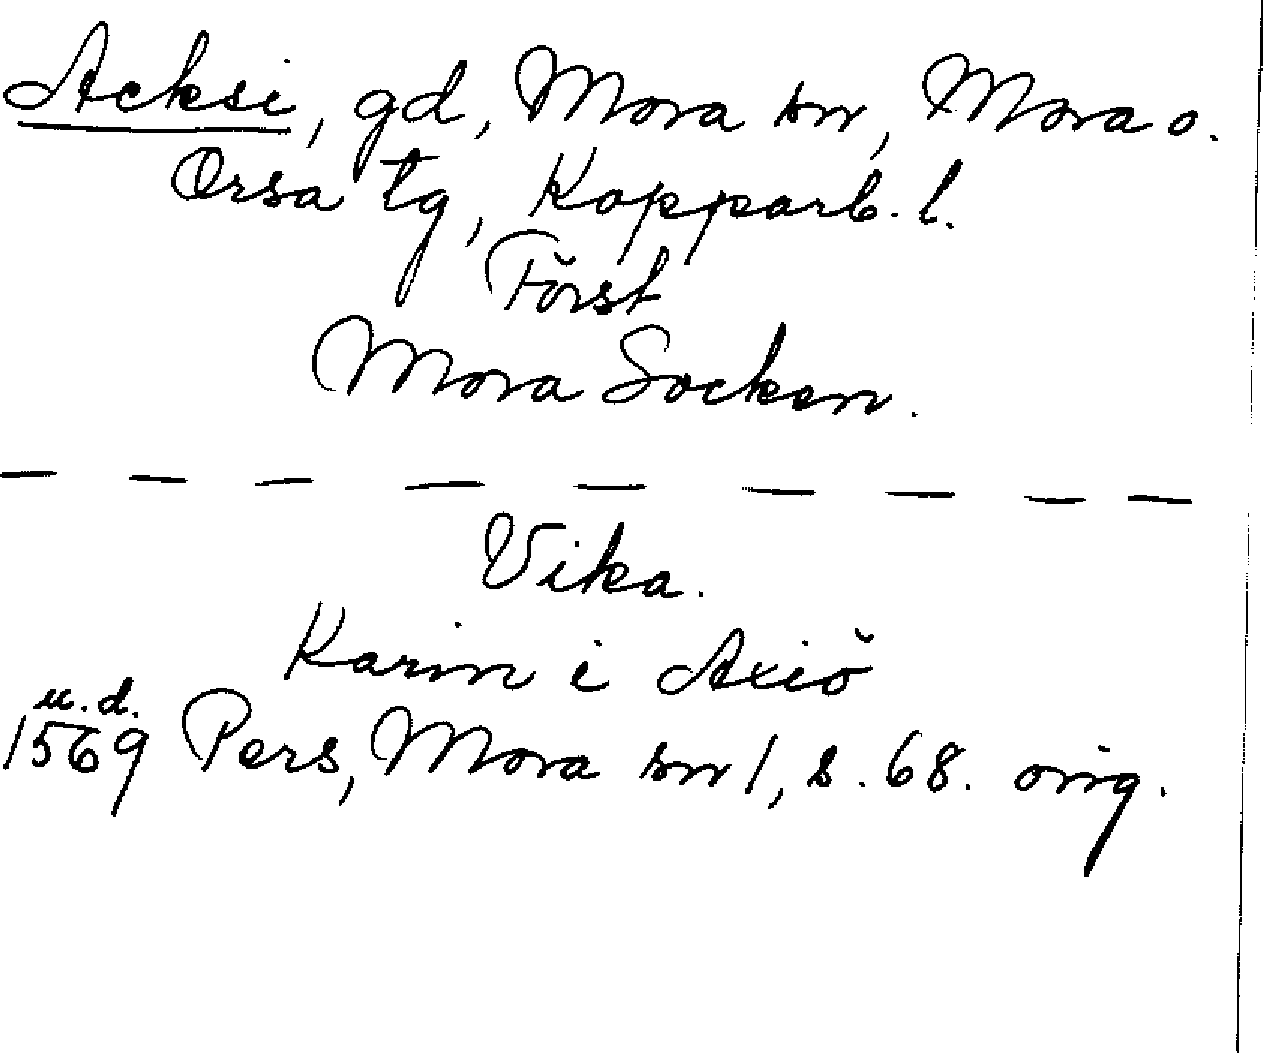 Acksi, gd, Mora sn, Mora o.
Orsa tg, Kopparb. l.
Först
Mora Socken.
Vika.
Karin i Axiö
u.d.
1569 Pers, Mora sn 1, s. 68. orig.